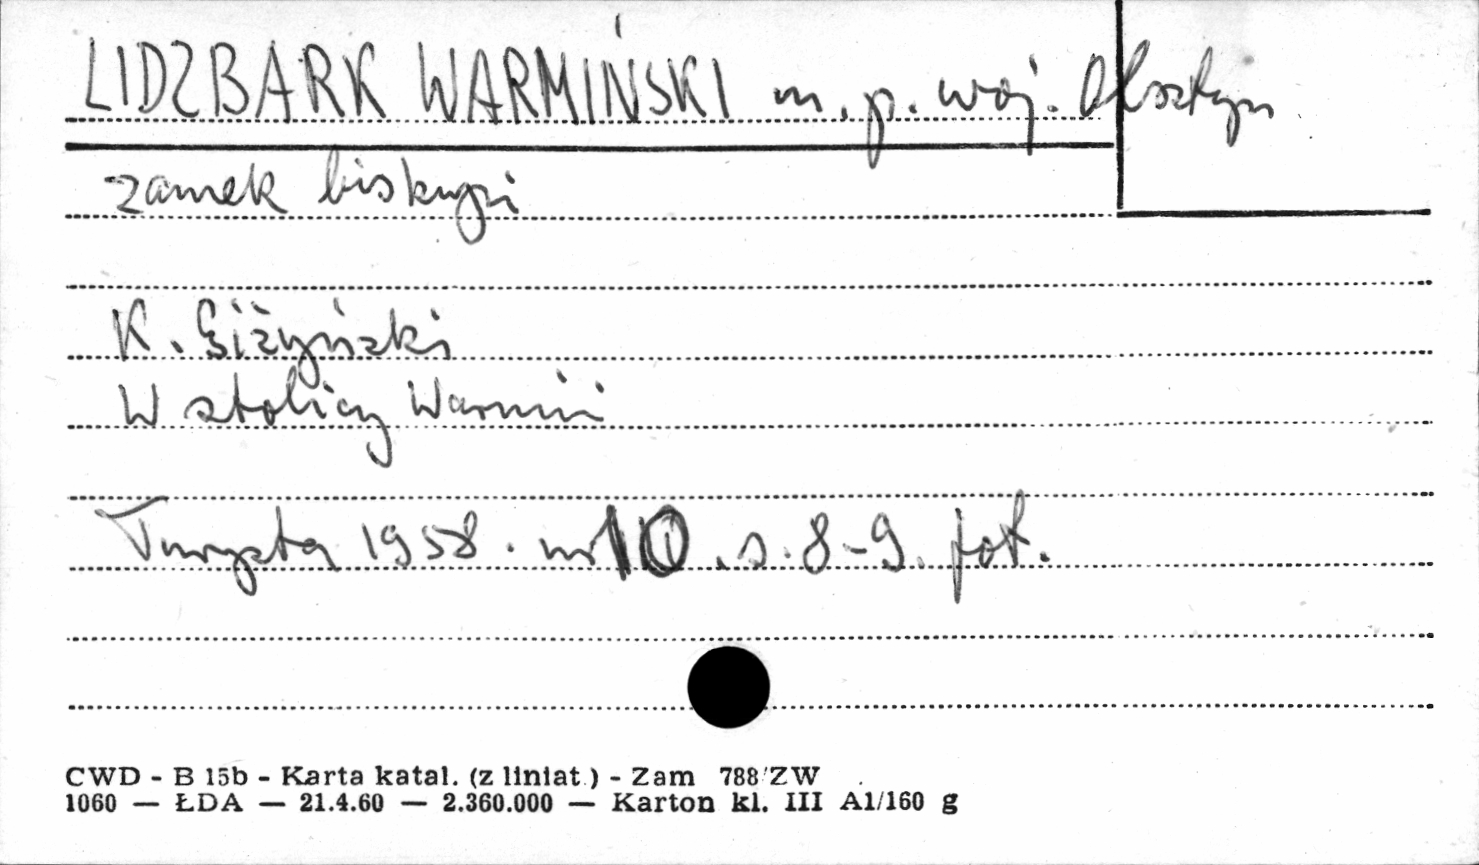 LIDZBARK WARMIŃSKI m. p. woj. Olsztyn
zamek biskupi
K. Giżyński
W stolicy Warmii
Turysta 1958. nr 10. s. 8-9. fot.
CWD - B 15b - Karta katal. (z liniat.) - Zam 788/ZW
1060 — ŁDA — 21.4.60 — 2.360.000 — Karton kl. III A1/160 g